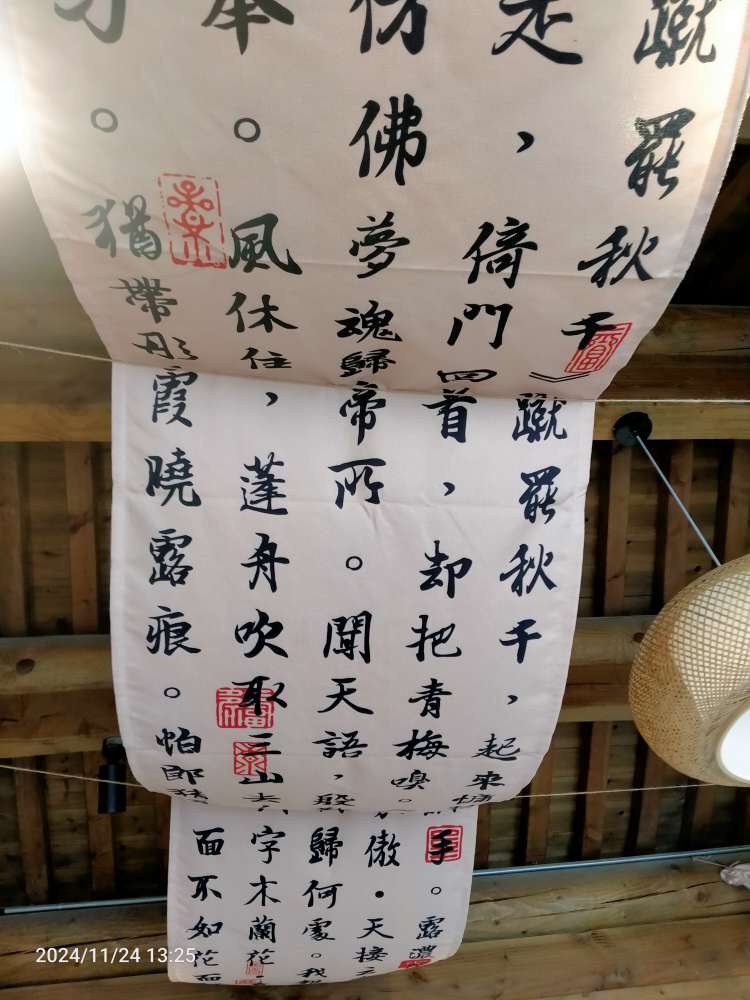 蹴罷秋千》
走，倚門回
仿佛夢魂歸
。風休住
。猶帶彤
蹴罷秋千，起來慵
首，却把青梅嗅。
帝所。聞天語，殷
，蓬舟吹取三山去
霞曉露痕。怕郎猜
手。露濃
傲·天接
歸何處。我報
字木蘭花·
面不如花面
2024/11/24 13:25